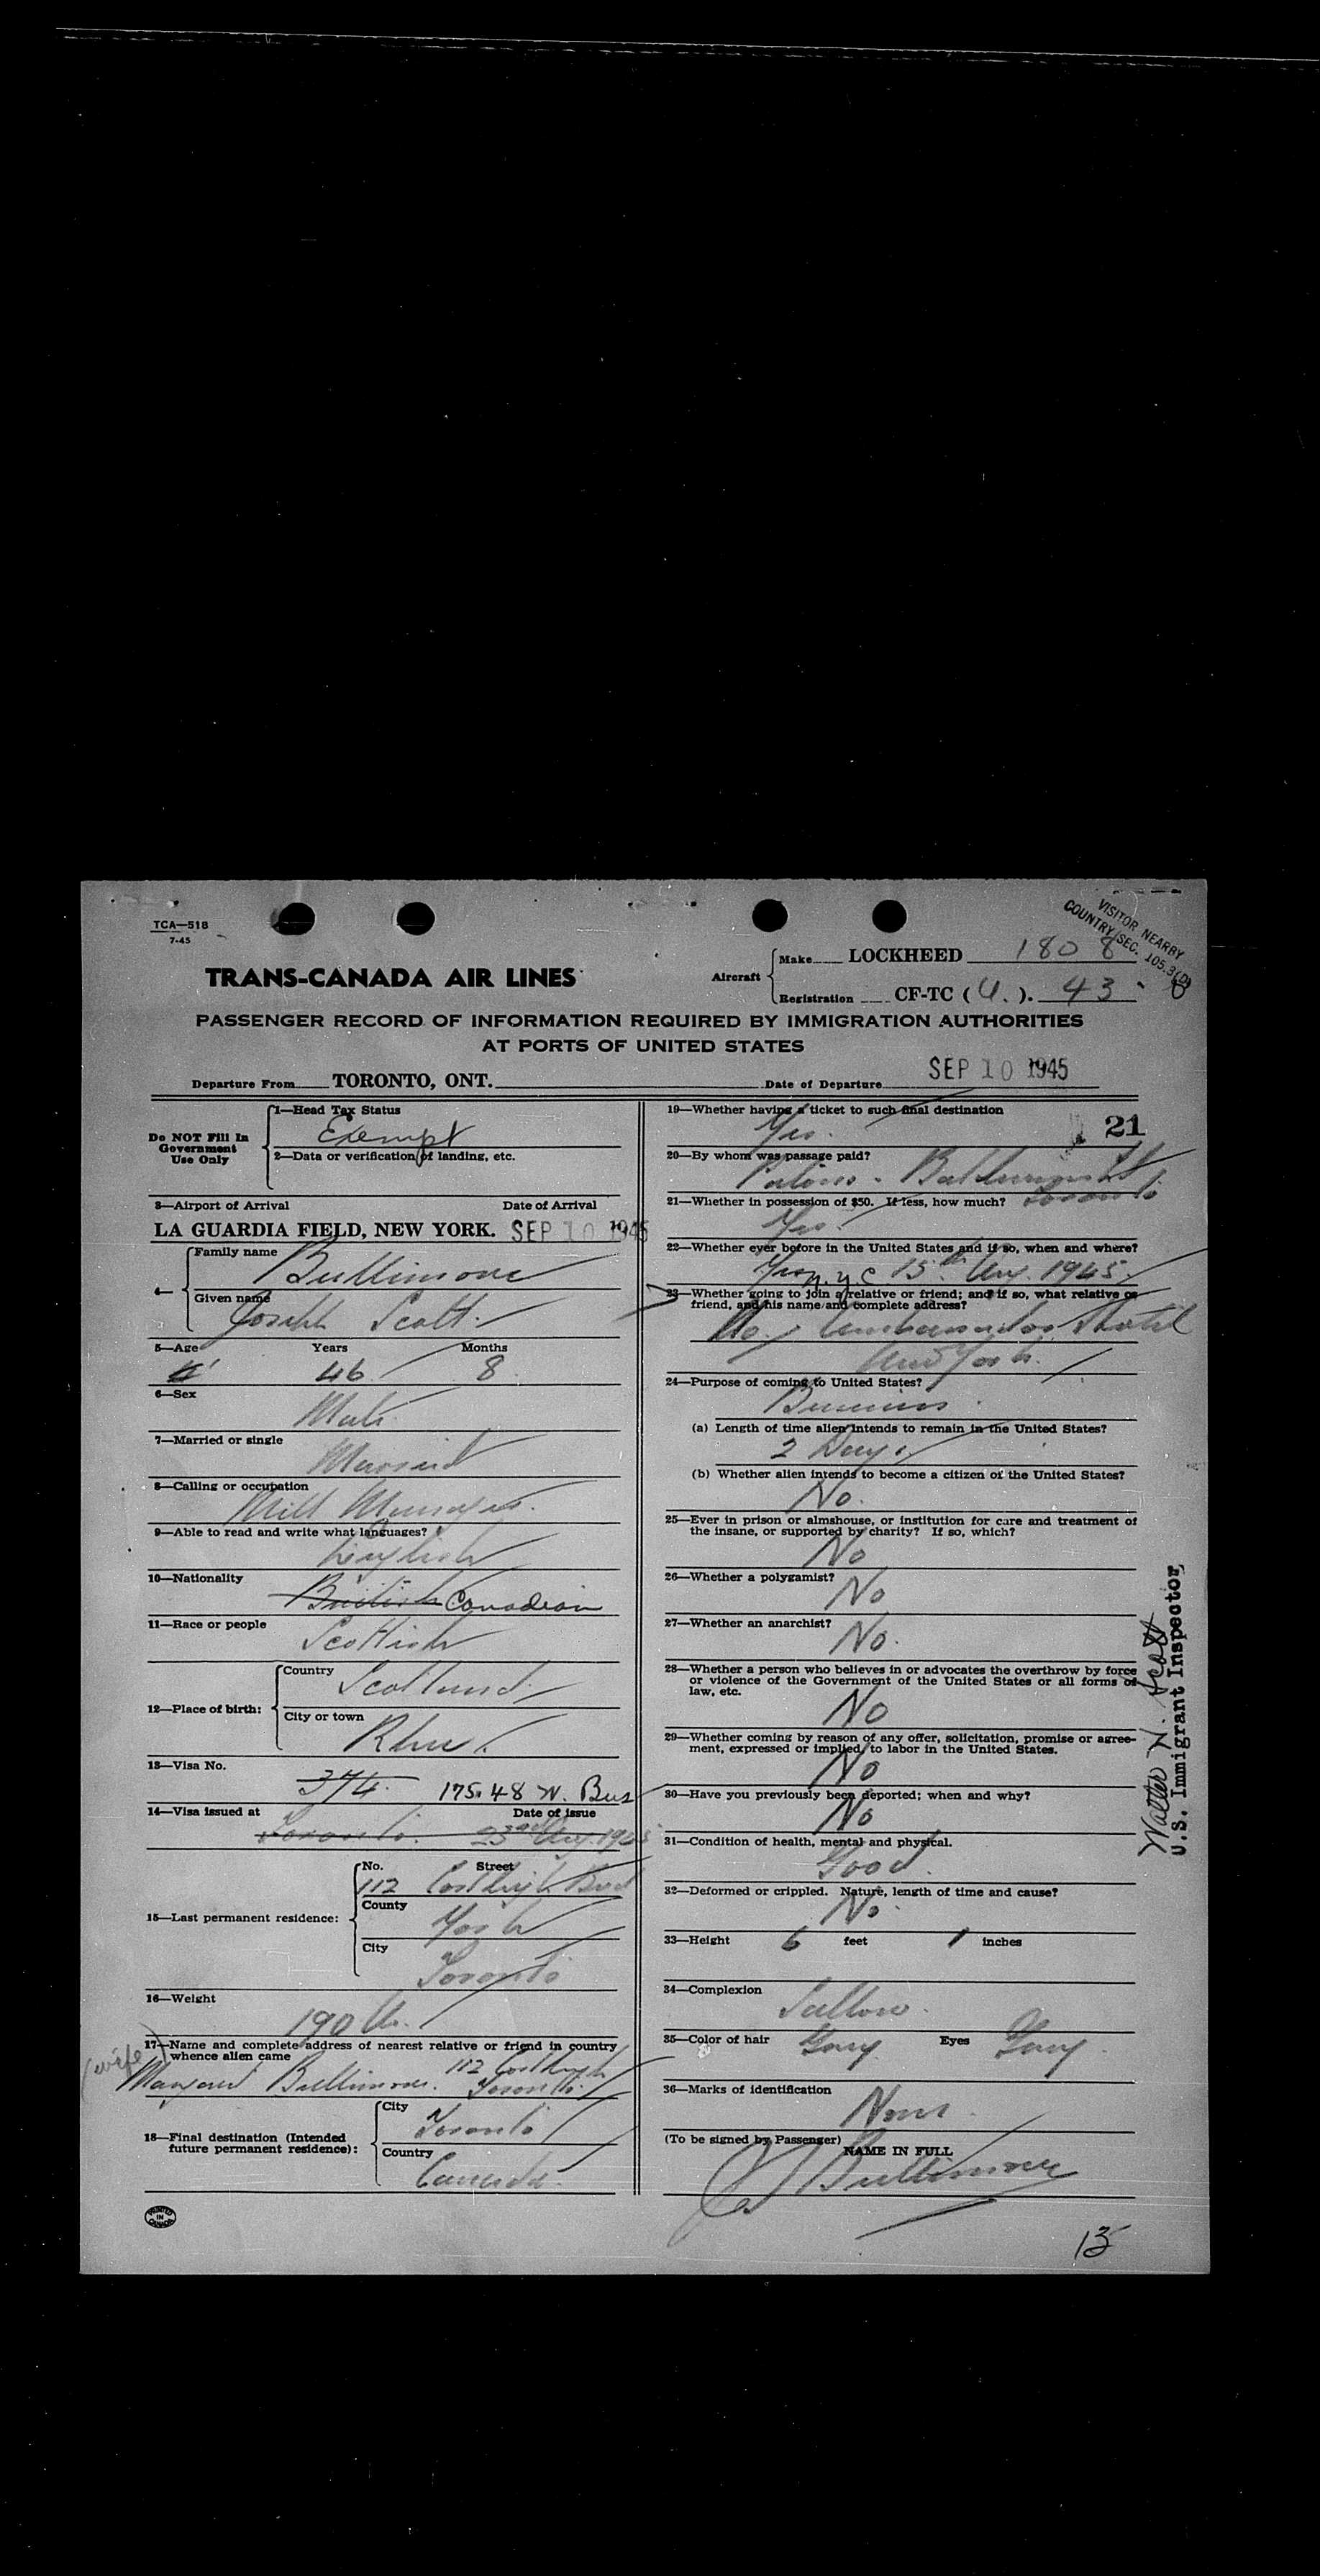 TCA—518
7-45
VISITOR NEARBY
COUNTRY SEC. 105.3(D)
TRANS-CANADA AIR LINES
Aircraft
Make LOCKHEED 1808
Registration CF-TC (U.). 43
PASSENGER RECORD OF INFORMATION REQUIRED BY IMMIGRATION AUTHORITIES
AT PORTS OF UNITED STATES
Departure From TORONTO, ONT. Date of Departure SEP 10 1945
Do NOT Fill In Government Use Only
1—Head Tax Status
Exempt
2—Data or verification of landing, etc.
3—Airport of Arrival Date of Arrival
LA GUARDIA FIELD, NEW YORK. SEP 10 1945
4— Family name
Bullimore
Given name
Joseph Scott.
5—Age Years Months
46 8
6—Sex
Male
7—Married or single
Married
8—Calling or occupation
Mill Manager.
9—Able to read and write what languages?
English
10—Nationality
British Canadian
11—Race or people
Scottish
12—Place of birth:
Country
Scotland
City or town
Rhu.
13—Visa No.
374. 175.48 N. Bus
14—Visa issued at Date of issue
Toronto. 23rd Aug. 1945
15—Last permanent residence:
No. Street
112
County
York
City
Toronto
16—Weight
190 lb.
17—Name and complete address of nearest relative or friend in country
whence alien came
(wife)
Margaret Bullimore. 112
Toronto.
18—Final destination (Intended
future permanent residence):
City
Toronto
Country
Canada.
PRINTED IN CANADA
19—Whether having a ticket to such final destination
Yes. 21
20—By whom was passage paid?
Toronto
21—Whether in possession of $50. If less, how much?
Yes.
22—Whether ever before in the United States and if so, when and where?
Yes N.Y.C 15th Aug. 1945.
23—Whether going to join a relative or friend; and if so, what relative or
friend, and his name and complete address?
No. Ambassador Hotel
New York.
24—Purpose of coming to United States?
Business.
(a) Length of time alien intends to remain in the United States?
2 Days.
(b) Whether alien intends to become a citizen of the United States?
No.
25—Ever in prison or almshouse, or institution for care and treatment of
the insane, or supported by charity? If so, which?
No
26—Whether a polygamist?
No
27—Whether an anarchist?
No.
28—Whether a person who believes in or advocates the overthrow by force
or violence of the Government of the United States or all forms of
law, etc.
No
29—Whether coming by reason of any offer, solicitation, promise or agree-
ment, expressed or implied, to labor in the United States.
No
30—Have you previously been deported; when and why?
No
31—Condition of health, mental and physical.
Good.
32—Deformed or crippled. Nature, length of time and cause?
No.
33—Height 6 feet 1 inches
34—Complexion
Sallow.
35—Color of hair Grey Eyes Grey.
36—Marks of identification
None.
(To be signed by Passenger)
NAME IN FULL
J Bullimore
13
Walter N. Scott
U.S. Immigrant Inspector